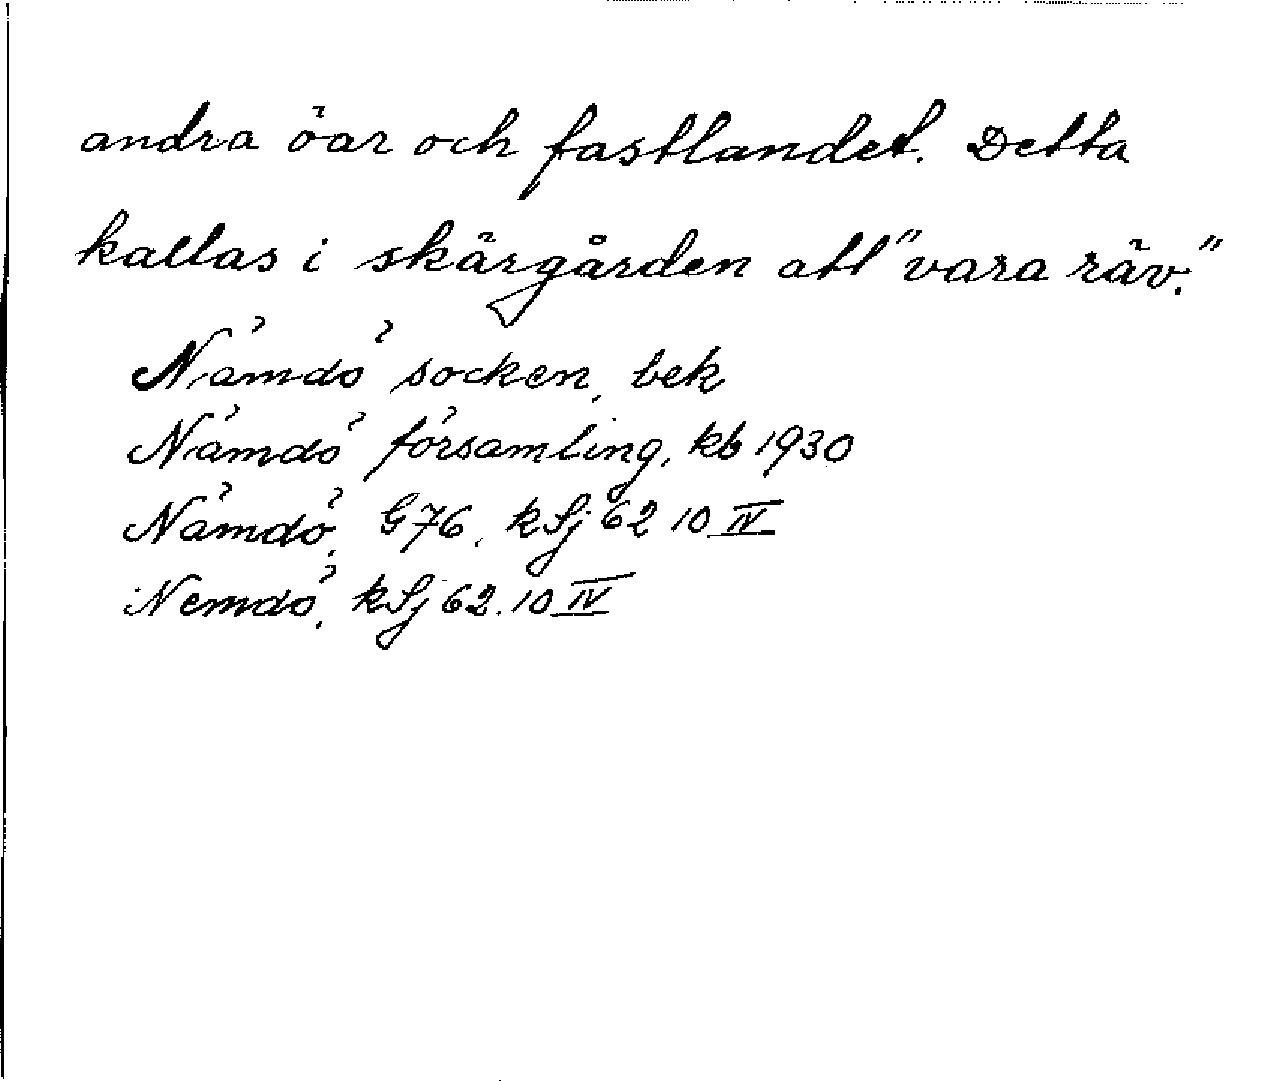 andra öar och fastlandet. Detta
kallas i skärgården att "vara räv."
Nämdö socken, bek
Nämdö församling, kb 1930
Nämdö, G76, kSj 62 10 IV
Nemdö, kSj 62. 10 IV